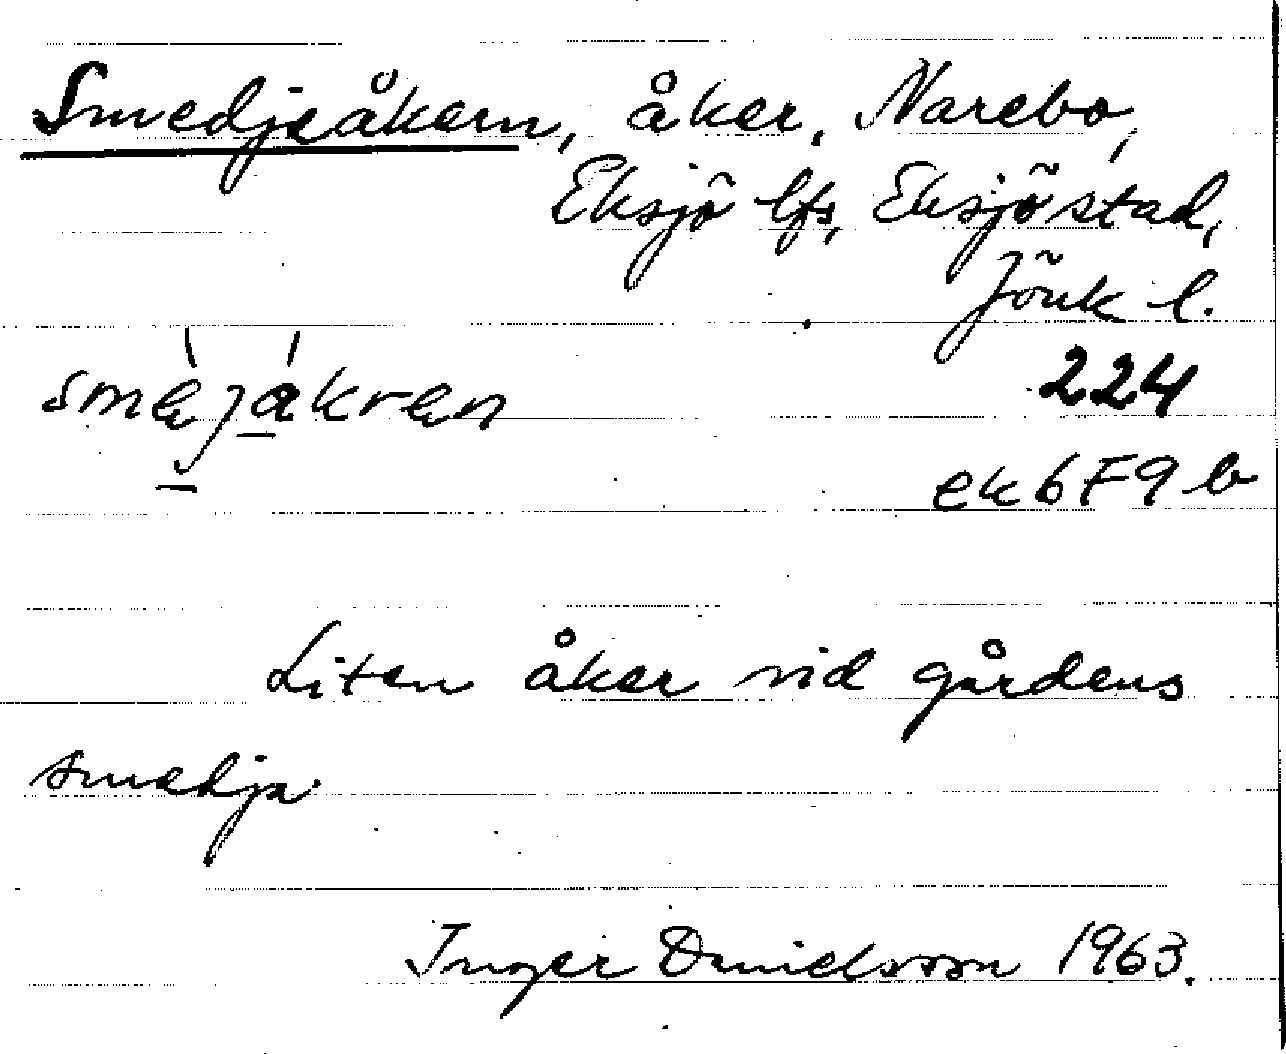 Smedjeåkern, åker, Narebo,
Eksjö lfs, Eksjö stad,
Jönk l.
224
smèjákren
ek 6F9 b
Liten åker vid gårdens
smedja.
Inger Danielsson 1963.